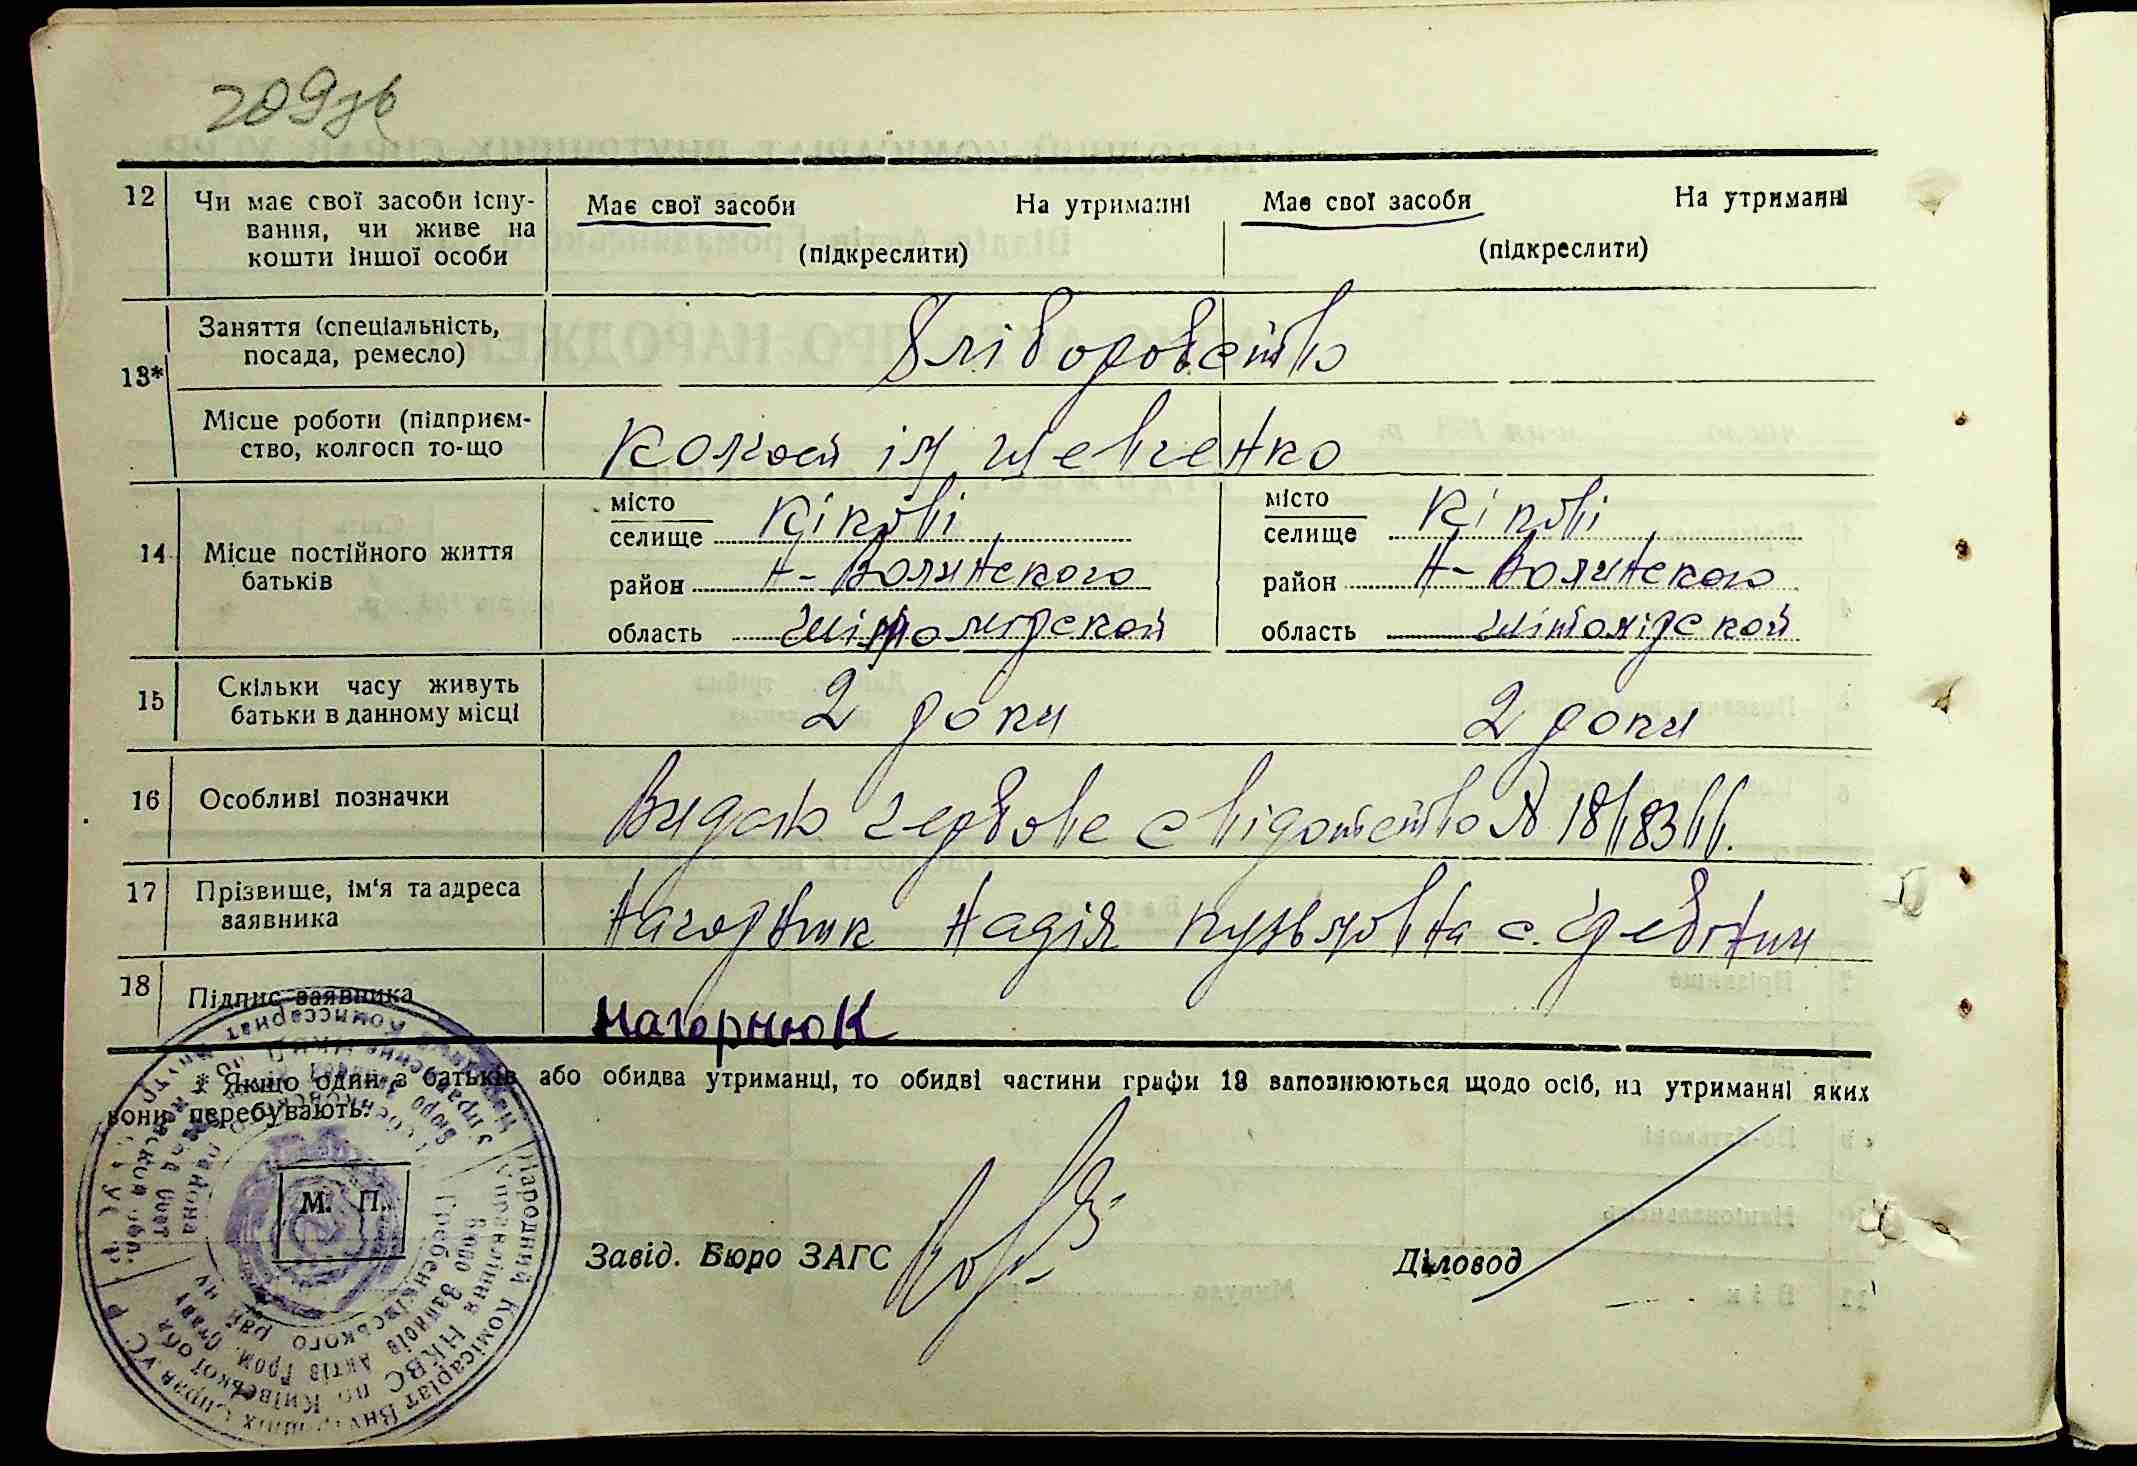 209зв
12 Чи має свої засоби існу-
вання, чи живе на
кошти іншої особи
Має свої засоби На утриманні
(підкреслити)
Має свої засоби На утриманні
(підкреслити)
13*
Заняття (спеціальність,
посада, ремесло)
Хліборобство
Місце роботи (підприєм-
ство, колгосп то-що
Колгосп ім Шевченко
14 Місце постійного життя
батьків
місто
селище Кікові
район Н-Волинского
область Житомирской
місто
селище Кікові
район Н-Волинского
область Житомірской
15 Скільки часу живуть
батьки в данному місці
2 роки 2 роки
16 Особливі позначки
Видано червове свідотство №
17 Прізвище, ім'я та адреса
заявника
Нагорнюк Надія Кузьмовна с.
18 Підпис заявника
Нагорнюк
* Якщо один з батьків або обидва утриманці, то обидві частини графи 13 заповнюються щодо осіб, на утриманні яких
вони перебувають.
М. П.
Завід. Бюро ЗАГС
Діловод
Народний Комісаріат Внутрішніх Справ УСРР
Управління НКВС по Київській обл.
Бюро Записів Актів Гром. Стану
Гребенківського